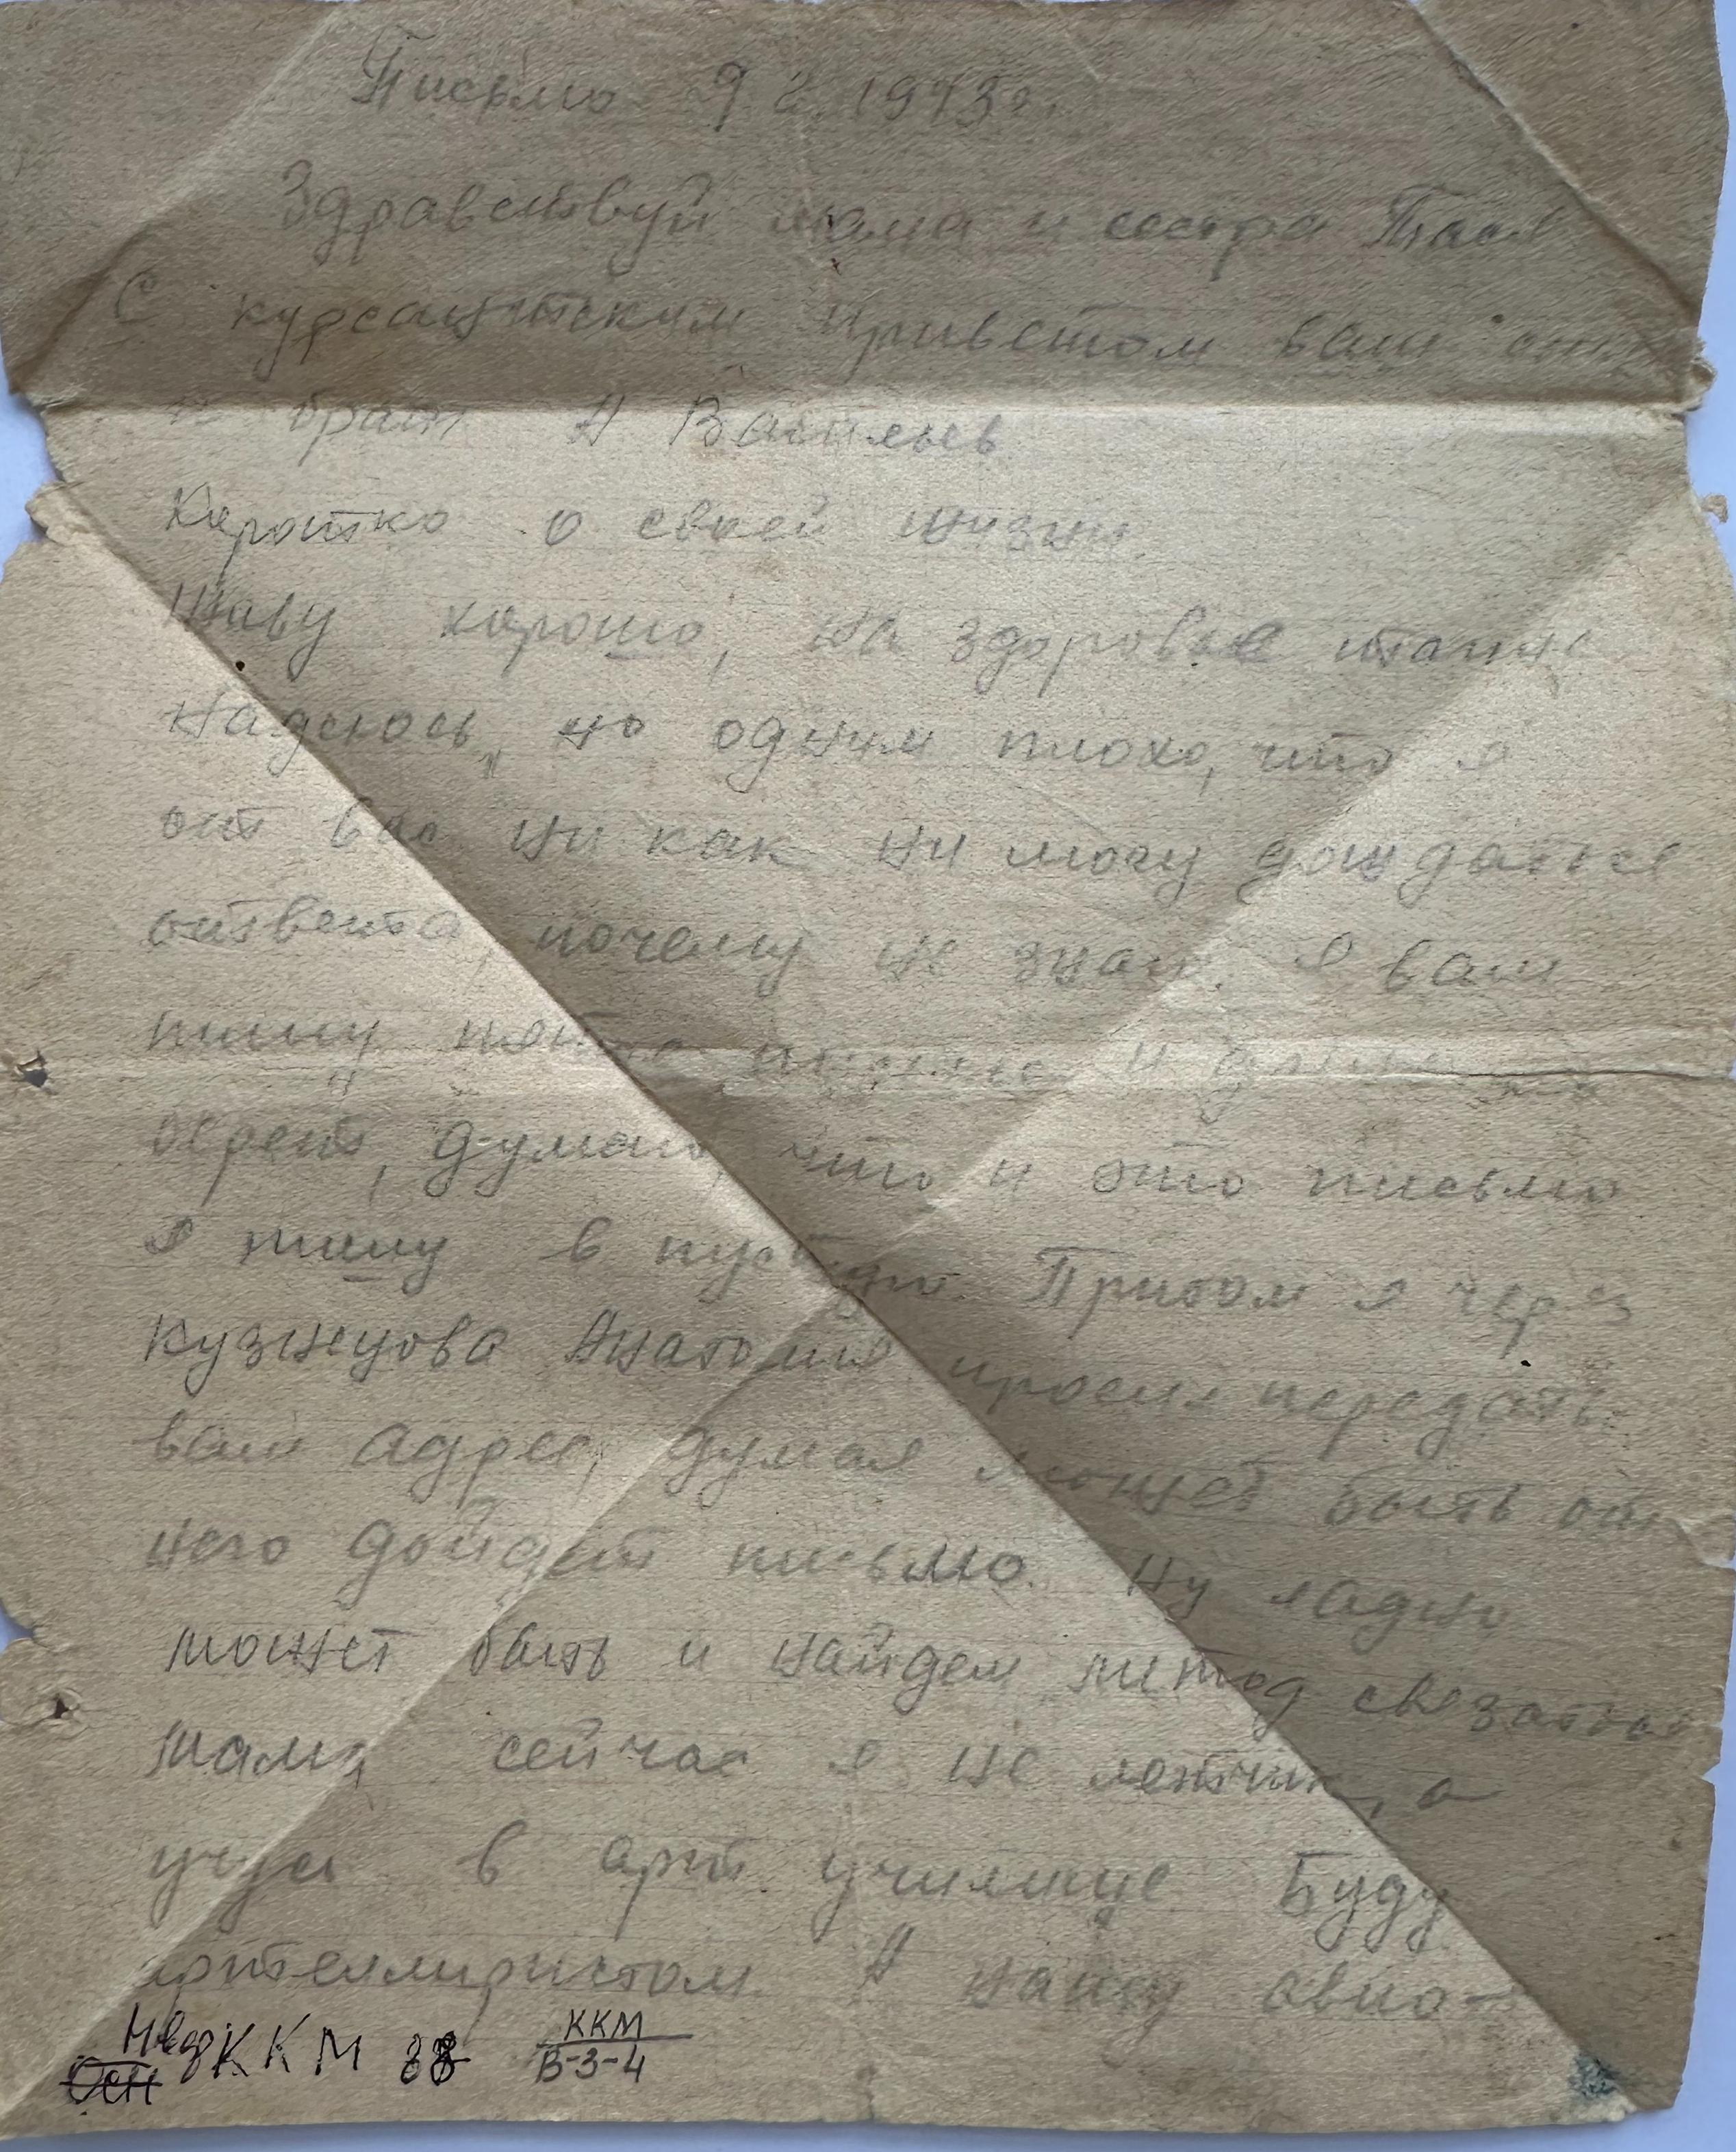 Письмо 9 2. 1943г.
Здравствуй мама и сестра Тася
С курсантским приветом ваш сын
и брат А Васильев
Коротко о своей жизни.
Живу хорошо, на здоровье также
надеюсь, но одним плохо, что я
от вас ни как ни могу дождатся
ответа, почему не знаю. я вам
пишу письмо и
думаю, что и это письмо
я пишу в пустую. Притом я через
Кузнецова Анатолия просил передать
вам адрес, думая может быть от
него дойдет письмо. Ну ладно
может быть и найдем митод свезатся
мама сейчас я не летчик, а
учуся в арт училище Буду
артеллиристом А нашу авио-
Нвд ККМ 38 ККМ
Осн В-3-4